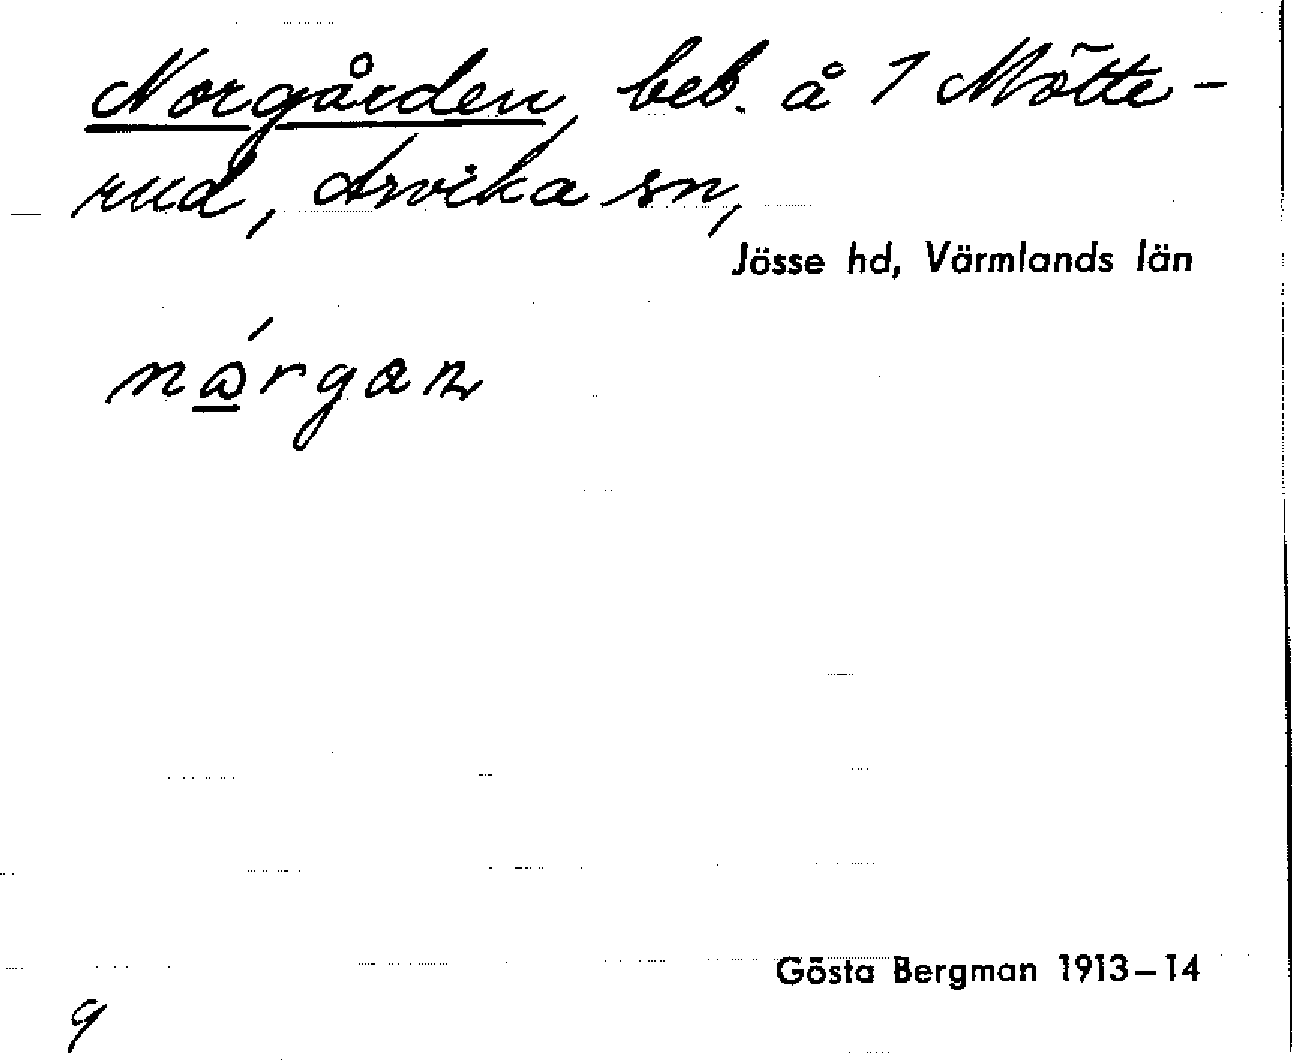 Norgården, beb. å 1 Mötte-
rud, Arvika sn,
Jösse hd, Värmlands län
Gösta Bergman 1913–14